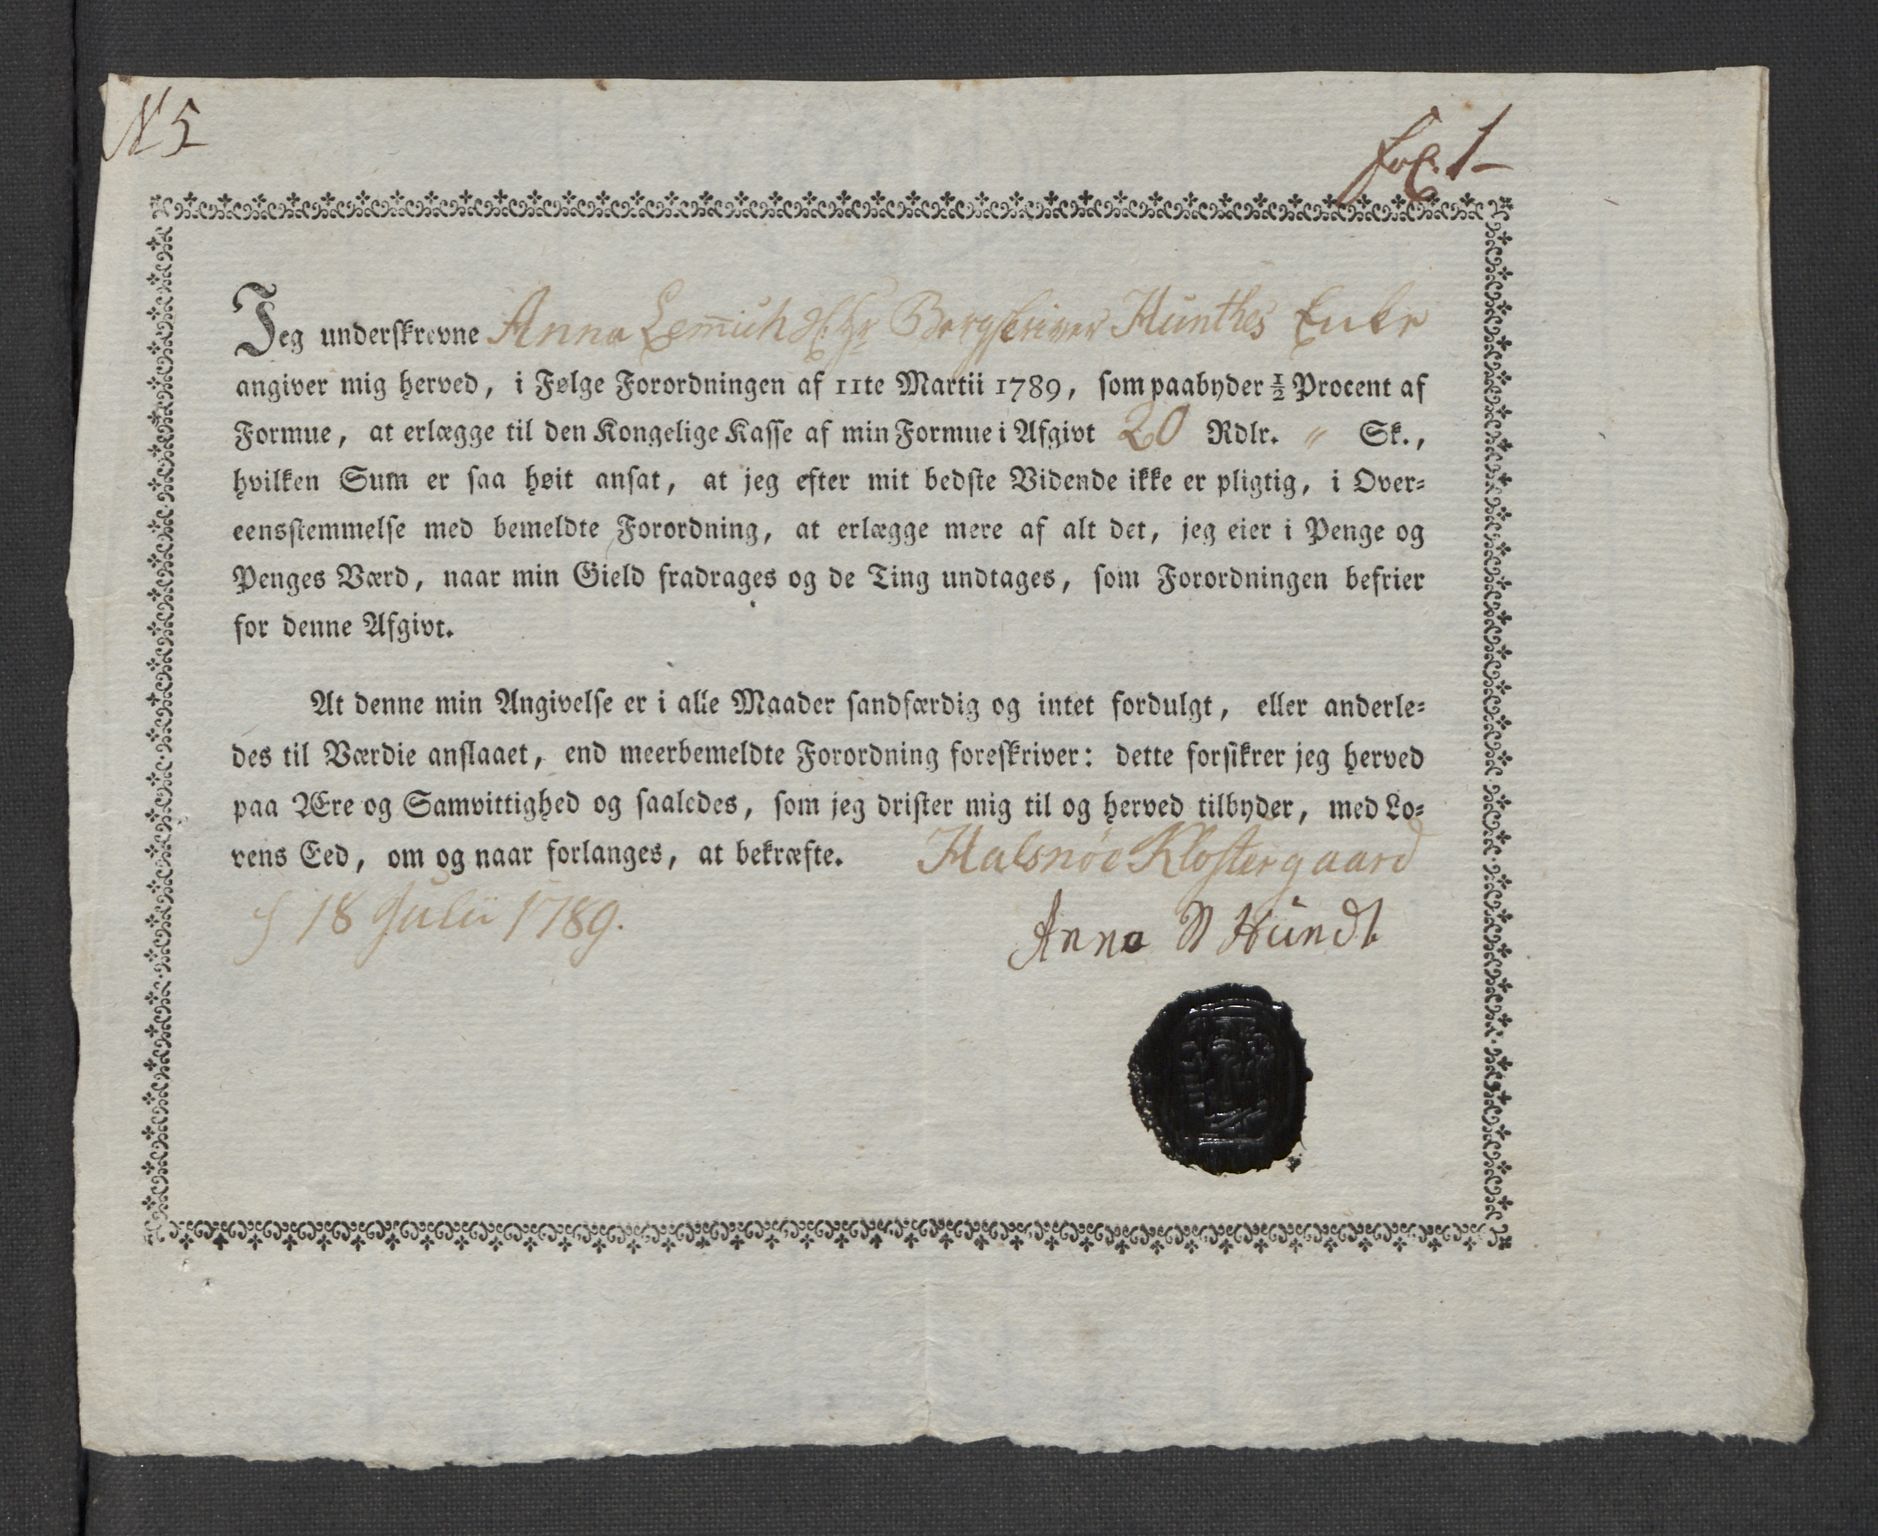 N 5
fol. 1
Jeg underskrevne Anna Lem̅ich Bergskriver Hünthes Enke
angiver mig herved, i Følge Forordningen af 11te Martii 1789, som paabyder ½ Procent af
Formue, at erlægge til den Kongelige Kasse af min Formue i Afgivt 20 Rdlr. " Sk.,
hvilken Sum er saa høit ansat, at jeg efter mit bedste Vidende ikke er pligtig, i Over-
eensstemmelse med bemeldte Forordning, at erlægge mere af alt det, jeg eier i Penge og
Penges Værd, naar min Gield fradrages og de Ting undtages, som Forordningen befrier
for denne Afgivt.
At denne min Angivelse er i alle Maader sandfærdig og intet fordulgt, eller anderle-
des til Værdie anslaaet, end meerbemeldte Forordning foreskriver: dette forsikrer jeg herved
paa Ære og Samvittighed og saaledes, som jeg drister mig til og herved tilbyder, med Lo-
vens Eed, om og naar forlanges, at bekræfte. Halsnøe Klostergaard
18 Julii 1789.
Anna Hündt